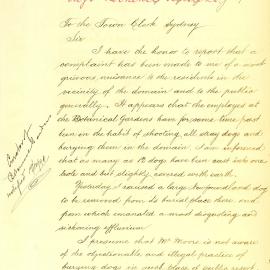 To the Town Clerk Sydney
Sir
I have the honor to report that a
complaint has been made to me of a most
grievous nuisance to the residents in the
vicinity of the domain and to the public
generally. It appears that the employees at
the Botanical Gardens have for some time past
been in the habit of shooting all stray dogs and
burying them in the domain. I am informed
that as many as 13 dogs have been cast into one
hole and but slightly covered with earth.
Yesterday I caused a large Newfoundland dog
to be removed from its burial place there and
from which emanated a most disgusting and
sickening effluvium
I presume that Mr Moore is not aware
of the objectionable and illegal practice of
burying dogs in such place of public resort